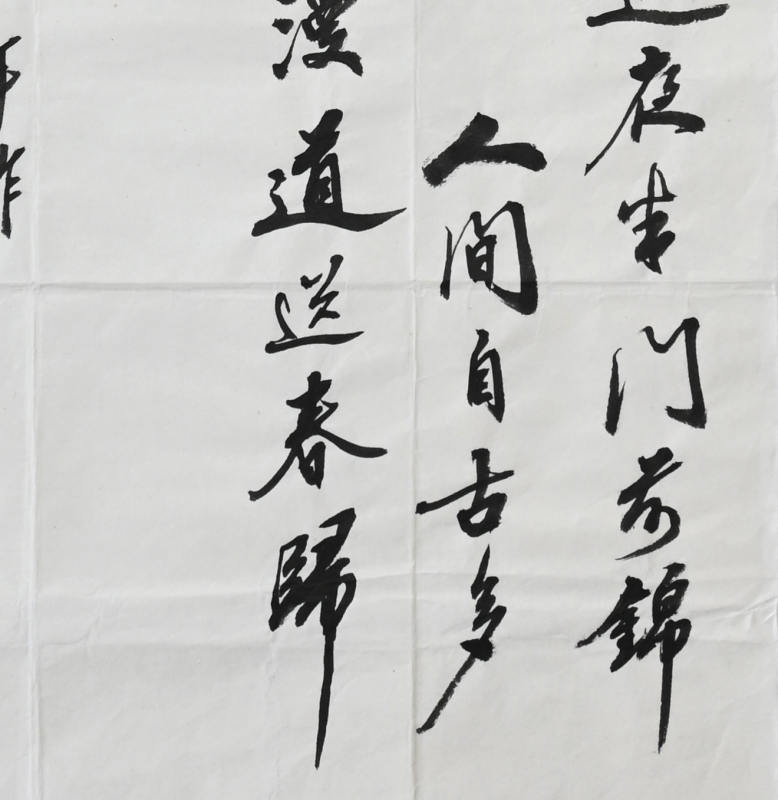 夜半門前錦
人間自古多
漫道送春歸